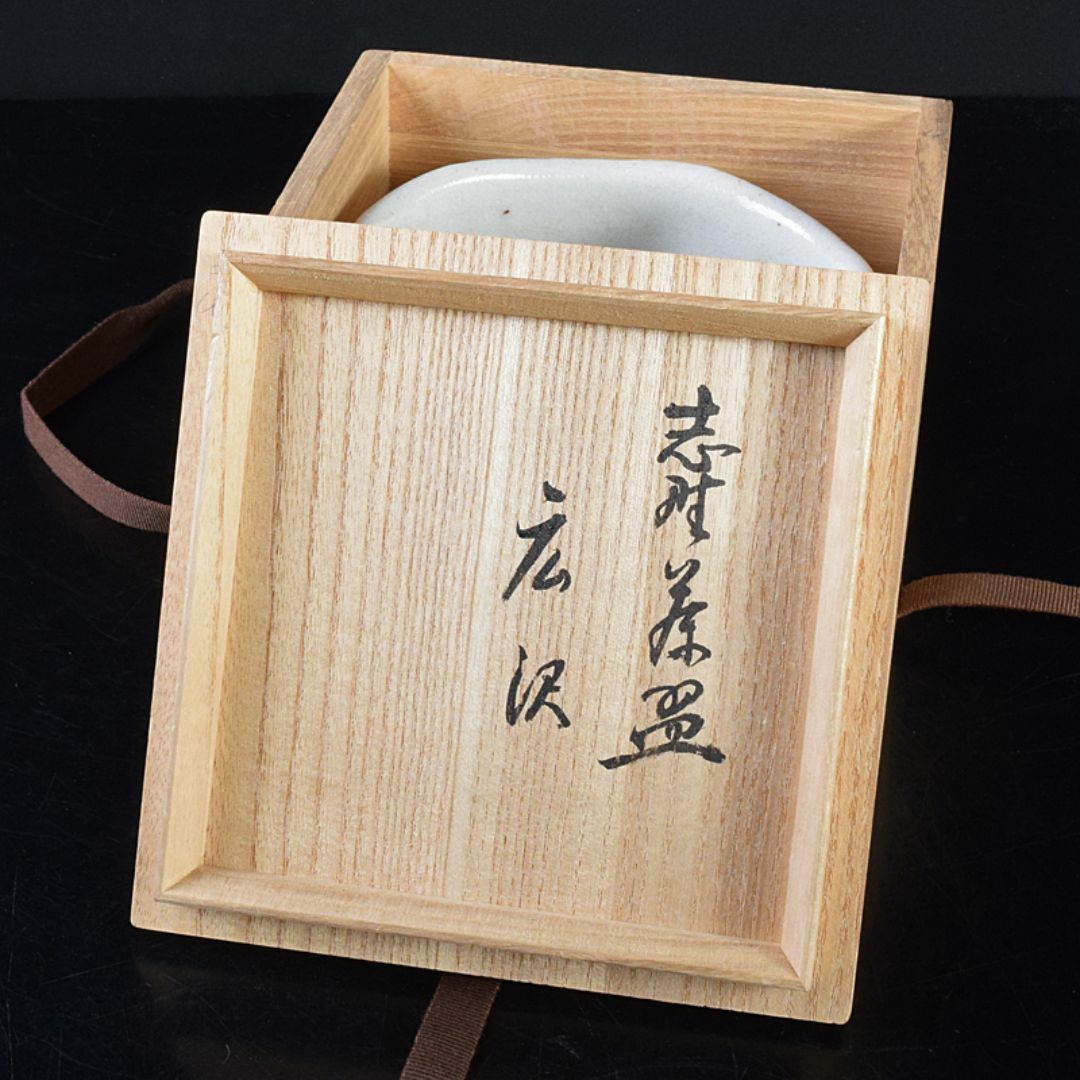 志野茶盌
広沢